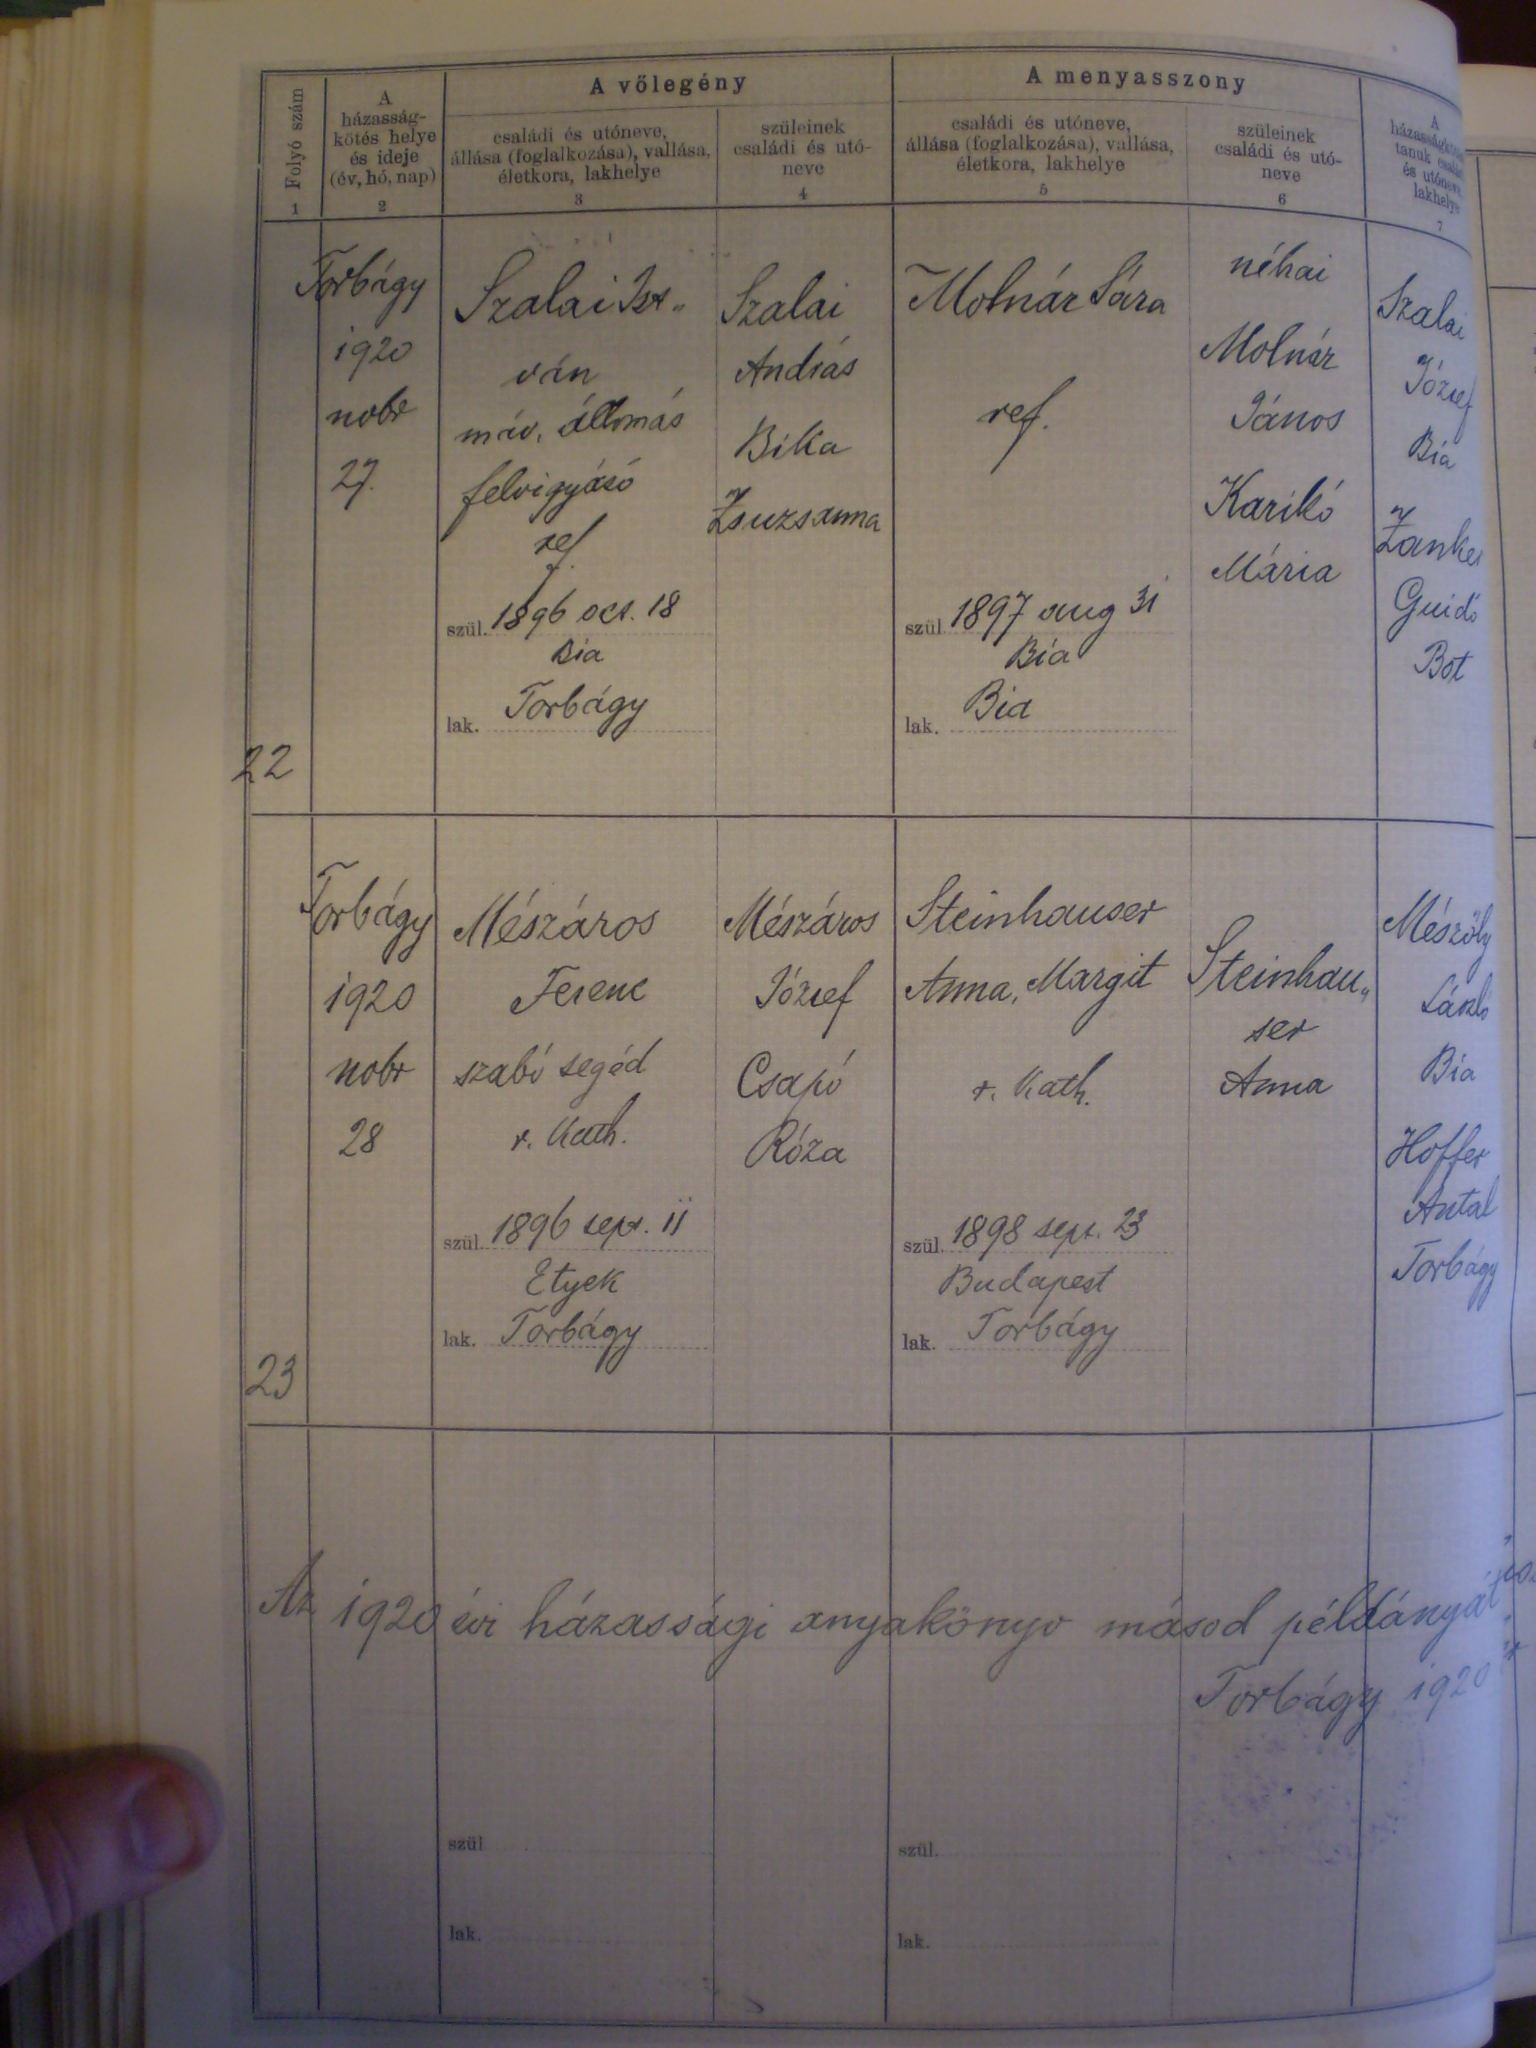 A vőlegény
A menyasszony
Folyó szám
1
A
házasság-
kötés helye
és ideje
(év, hó, nap)
2
családi és utóneve,
állása (foglalkozása), vallása,
életkora, lakhelye
3
szüleinek
családi és utó-
neve
4
családi és utóneve,
állása (foglalkozása), vallása,
életkora, lakhelye
5
szüleinek
családi és utó-
neve
6
A
tanuk
és utóneve,
lakhelye
7
22
Torbágy
1920
nobr
27.
Szalai Ist„
ván
máv. állomás
felvigyásó
ref.
szül. 1896 oct. 18
Bia
lak. Torbágy
Szalai
András
Bika
Zsuzsanna
Molnár Sára
ref.
szül. 1897 aug 31
Bia
lak. Bia
néhai
Molnár
János
Karikó
Mária
Szalai
József
Bia
Guidó
Bot
23
Torbágy
1920
nobr
28
Mészáros
Ferenc
szabó segéd
r. Kath.
szül. 1896 sept. 11
Etyek
lak. Torbágy
Mészáros
József
Csapó
Róza
Steinhauser
Anna, Margit
r. Kath.
szül. 1898 sept. 23
Budapest
lak. Torbágy
Steinhau„
ser
Anna
Mészöly
László
Bia
Hoffer
Antal
Torbágy
Az 1920 évi házassági anyakönyv másod példányát
Torbágy 1920
szül
lak.
szül.
lak.